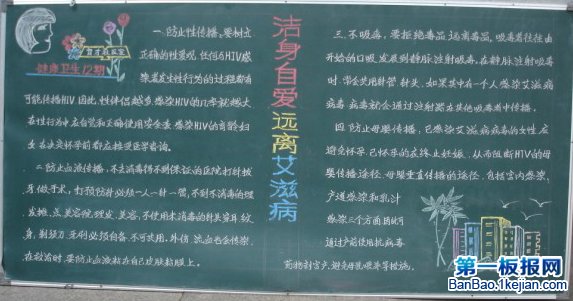 育才教育室
健康卫生12期
洁身自爱远离艾滋病
一.防止性传播。要树立
正确的性观,任何与HIV感
染者发生性行为的过程都有
可能传播HIV因此,性伴侣越多感染HIV的几率就越大
在性行为中应自觉和正确使用安全套.感染HIV的育龄妇
女在决定怀孕前都应接受医学咨询。
二.防止血液传播。不去消毒得不到保证的医院打针拔
牙做手术,打预防针必须一人一针一管,不到不消毒的理
发摊、点、美容院理发、美容,不使用未消毒的针头穿耳纹
身,剃须刀、牙刷必须自备,不可共用。外伤、流血也会传染,
在救治时,要防止血液粘在自己皮肤粘膜上。
三.不吸毒。要拒绝毒品,远离毒品,吸毒者往往由
开始的口吸,发展到静脉注射吸毒,在静脉注射吸毒
时,常会共用针管、针头,如果其中有一个人感染艾滋病
病毒,病毒就会通过注射器在其他吸毒者中传播。
四.防止母婴传播。已感染艾滋病病毒的女性应
避免怀孕.已怀孕的应终止妊娠,从而阻断HIV的母
婴传播途径,母婴垂直传播的途径,包括宫内感染、
产道感染和乳汁
感染三个方面.因此可
通过产前使用抗病毒
药物剖宫产、避免母乳喂养等措施。
第一板报网
BanBao.1kejian.com